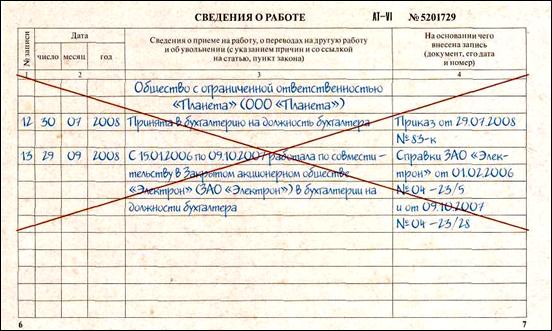 СВЕДЕНИЯ О РАБОТЕ AT-VI № 5201729
№ записи
Дата
число месяц год
Сведения о приеме на работу, о переводах на другую работу
и об увольнении (с указанием причин и со ссылкой
на статью, пункт закона)
На основании чего
внесена запись
(документ, его дата
и номер)
1 2 3 4
Общество с ограниченной ответственностью
«Планета» (ООО «Планета»)
12 30 07 2008 Принята в бухгалтерию на должность бухгалтера Приказ от 29.07.2008
№ 83-к
13 29 09 2008 С 15.01.2006 по 09.10.2007 работала по совмести- Справки ЗАО «Элек-
тельству в Закрытом акционерном обществе трон» от 01.02.2006
«Электрон» (ЗАО «Электрон») в бухгалтерии на № 04 -23/5
должности бухгалтера и от 09.10.2007
№ 04 -23/28
6 7